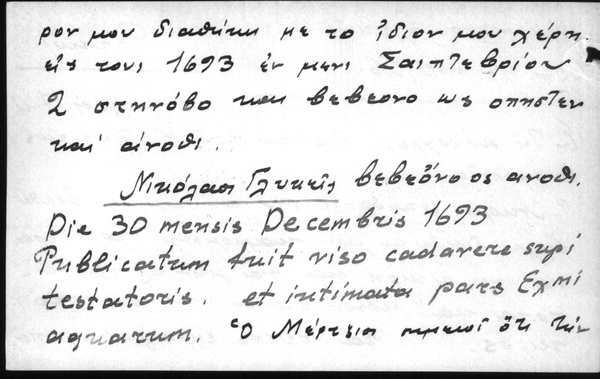 ρον μου διαθήκη με το ίδιον μου χέρη
είς τους 1693 έν μενι Σαιπτεβρίου
2 στηνόβο και βεβεονο ως οπησΤεν
και άνοθι.
Νικόλαοι Γλυκείς βεβεόνο ος ανοθι.
Die 30 mensis Decembris 1693
Publicatum fuit viso cadavere supi
testatoris. et intimata pars Exmi
aquarum. Ὁ Μέρτζιοι ότι τήν